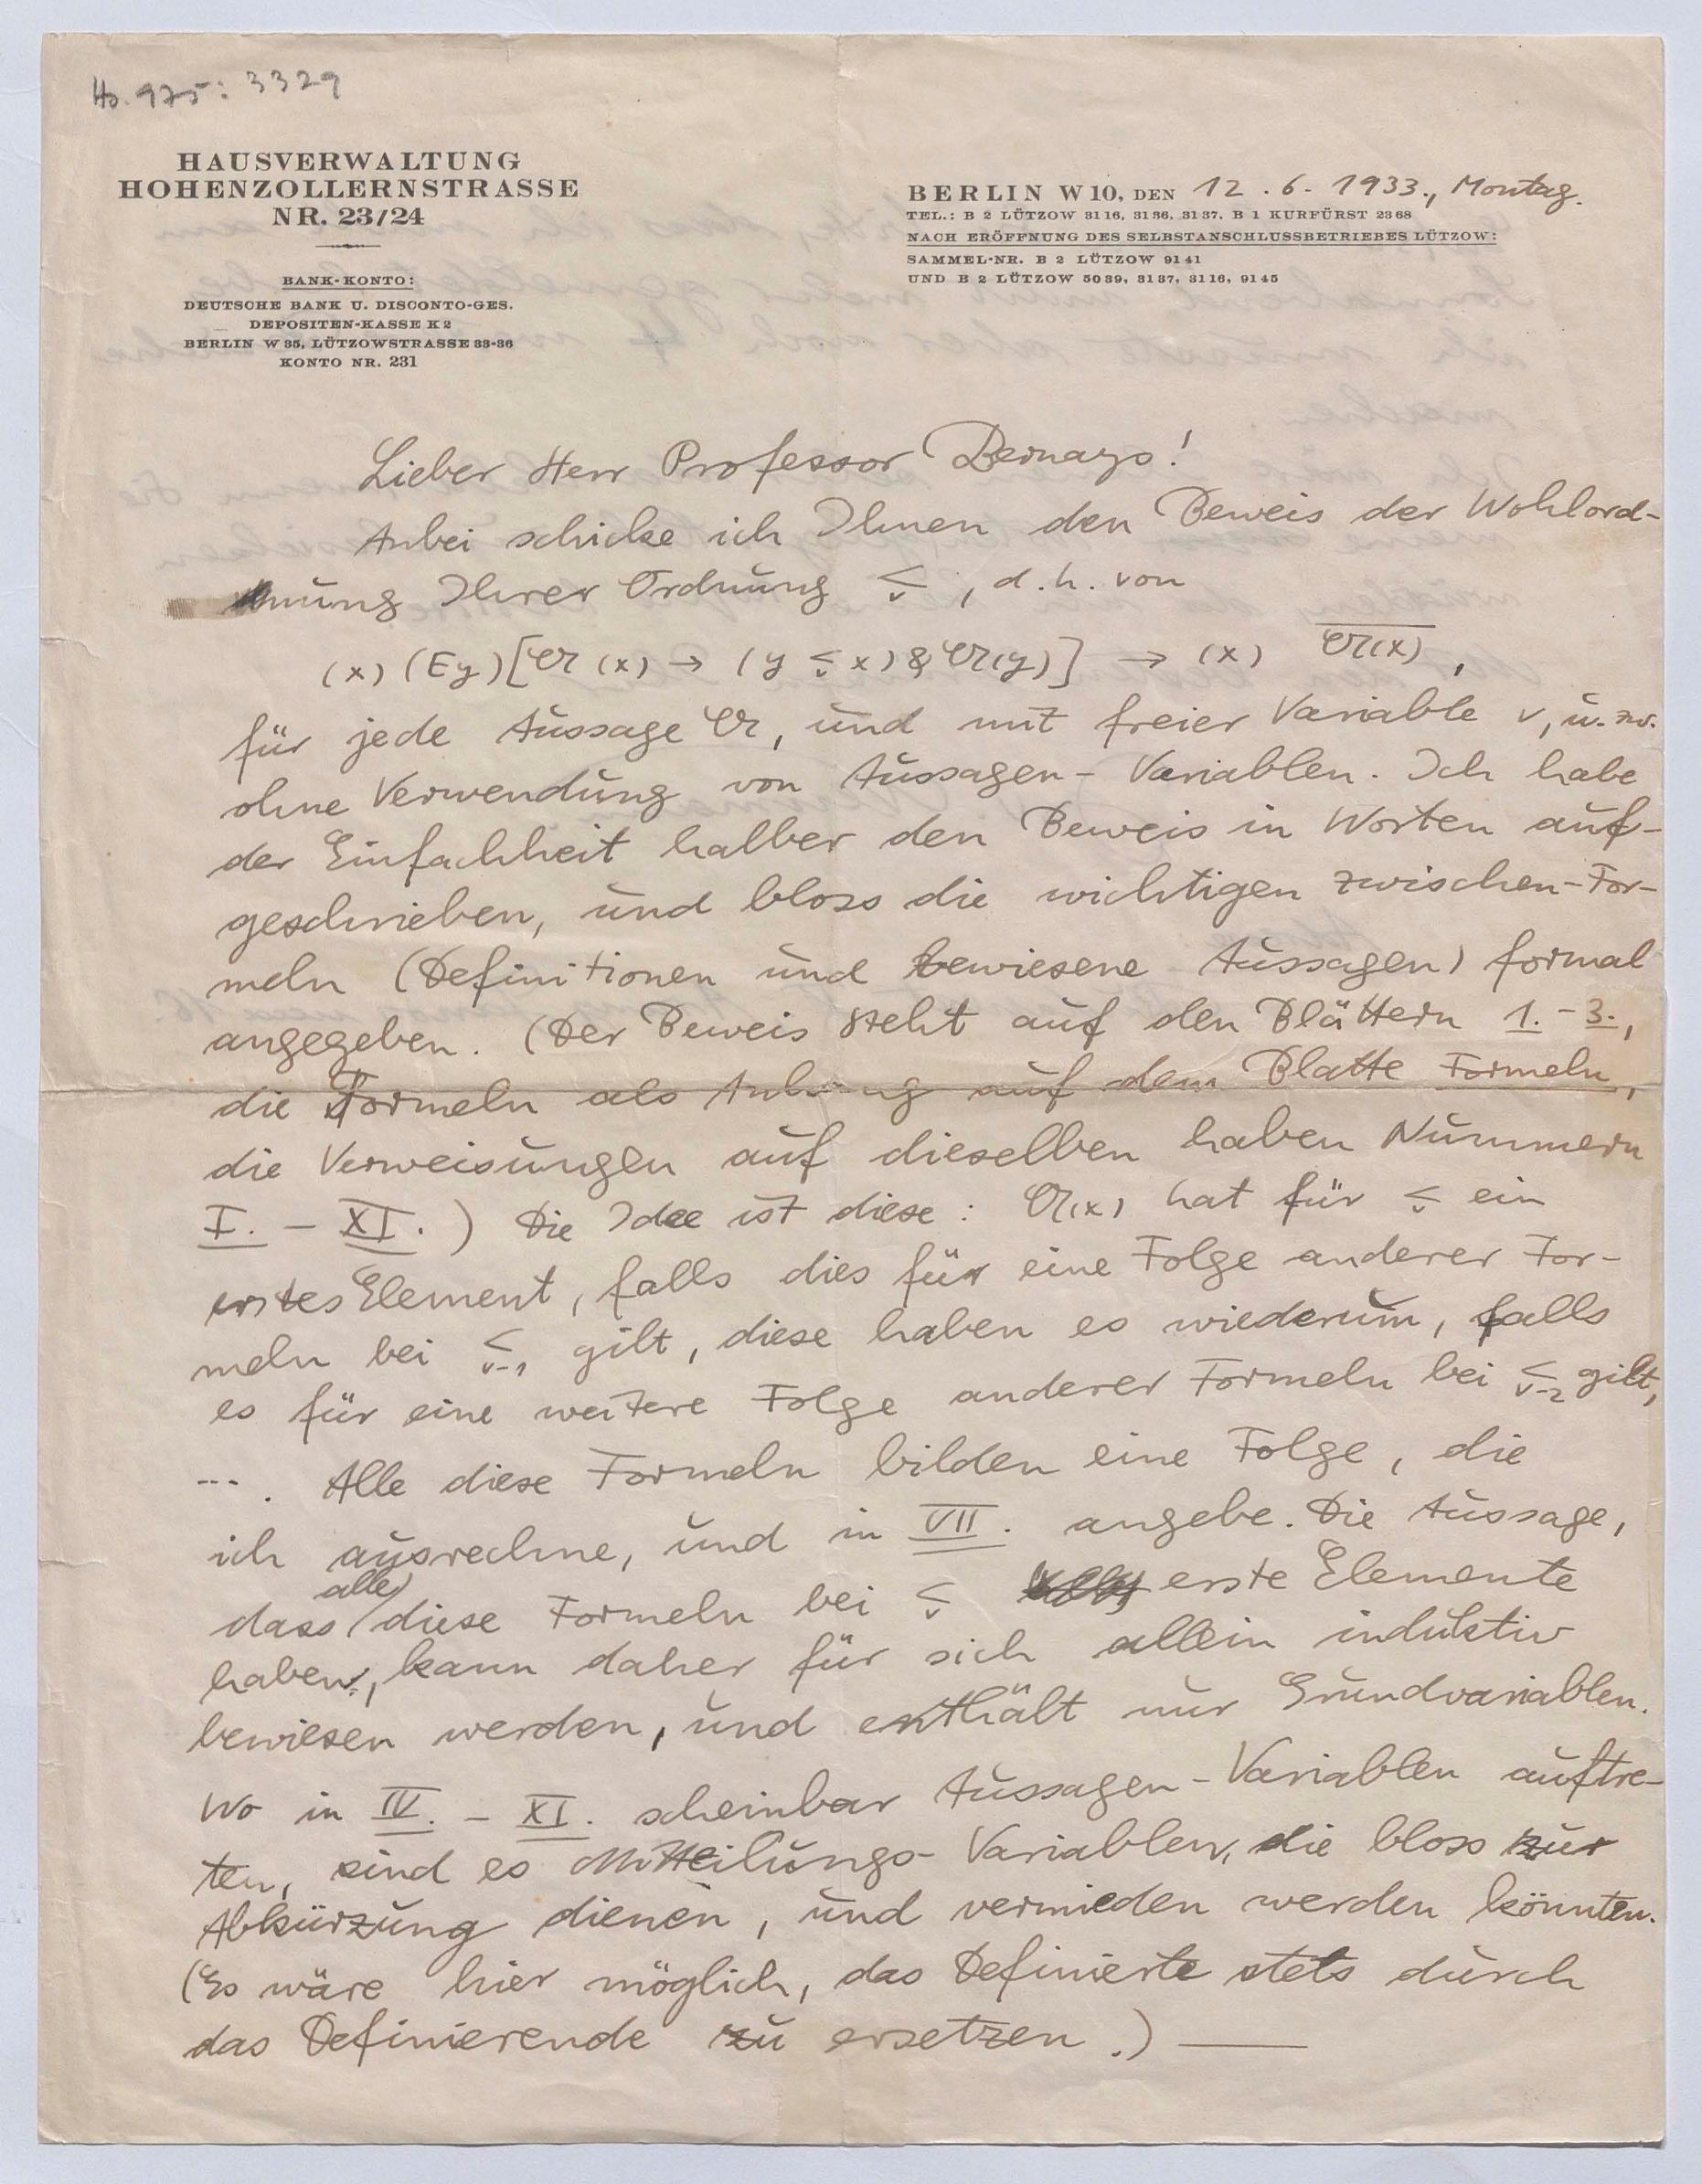 Hs. 975: 3329
HAUSVERWALTUNG
HOHENZOLLERNSTRASSE
NR. 23/24
BANK-KONTO:
DEUTSCHE BANK U. DISCONTO-GES.
DEPOSITEN-KASSE K 2
BERLIN W 35, LÜTZOWSTRASSE 33-36
KONTO NR. 231
BERLIN W 10, DEN 12. 6. 1933., Montag.
TEL.: B 2 LÜTZOW 3116, 3136, 3137, B 1 KURFÜRST 2368
NACH ERÖFFNUNG DES SELBSTANSCHLUSSBETRIEBES LÜTZOW:
SAMMEL-NR. B 2 LÜTZOW 9141
UND B 2 LÜTZOW 5039, 3137, 3116, 9145
Lieber Herr Professor Bernays!
Anbei schicke ich Ihnen den Beweis der Wohlord-
nung Ihrer Ordnung ≤ᵥ, d.h. von
(x) (Ey) [𝔄(x) → (y ≤ᵥ x) & 𝔄(y)] → (x) \overline{𝔄(x)},
für jede Aussage 𝔄, und mit freier Variable v, u. zw.
ohne Verwendung von Aussagen-Variablen. Ich habe
der Einfachheit halber den Beweis in Worten auf-
geschrieben, und bloss die wichtigen Zwischen-For-
meln (Definitionen und bewiesene Aussagen) formal
angegeben. (Der Beweis steht auf den Blättern 1.-3.,
die Formeln als Anhang auf dem Blatte Formeln,
die Verweisungen auf dieselben haben Nummern
I. - XI.) Die Idee ist diese: 𝔄(x) hat für ≤ᵥ ein
erstes Element, falls dies für eine Folge anderer For-
meln bei ≤ᵥ₋₁ gilt, diese haben es wiederum, falls
es für eine weitere Folge anderer Formeln bei ≤ᵥ₋₂ gilt,
.... Alle diese Formeln bilden eine Folge, die
ich ausrechne, und in VII. angebe. Die Aussage,
dass alle diese Formeln bei ≤ᵥ erste Elemente
haben, kann daher für sich allein induktiv
bewiesen werden, und enthält nur Grundvariablen.
Wo in IV. - XI. scheinbar Aussagen-Variablen auftre-
ten, sind es Mitteilungs-Variablen, die bloss zur
Abkürzung dienen, und vermieden werden könnten.
(Es wäre hier möglich, das Definierte stets durch
das Definierende zu ersetzen.) —